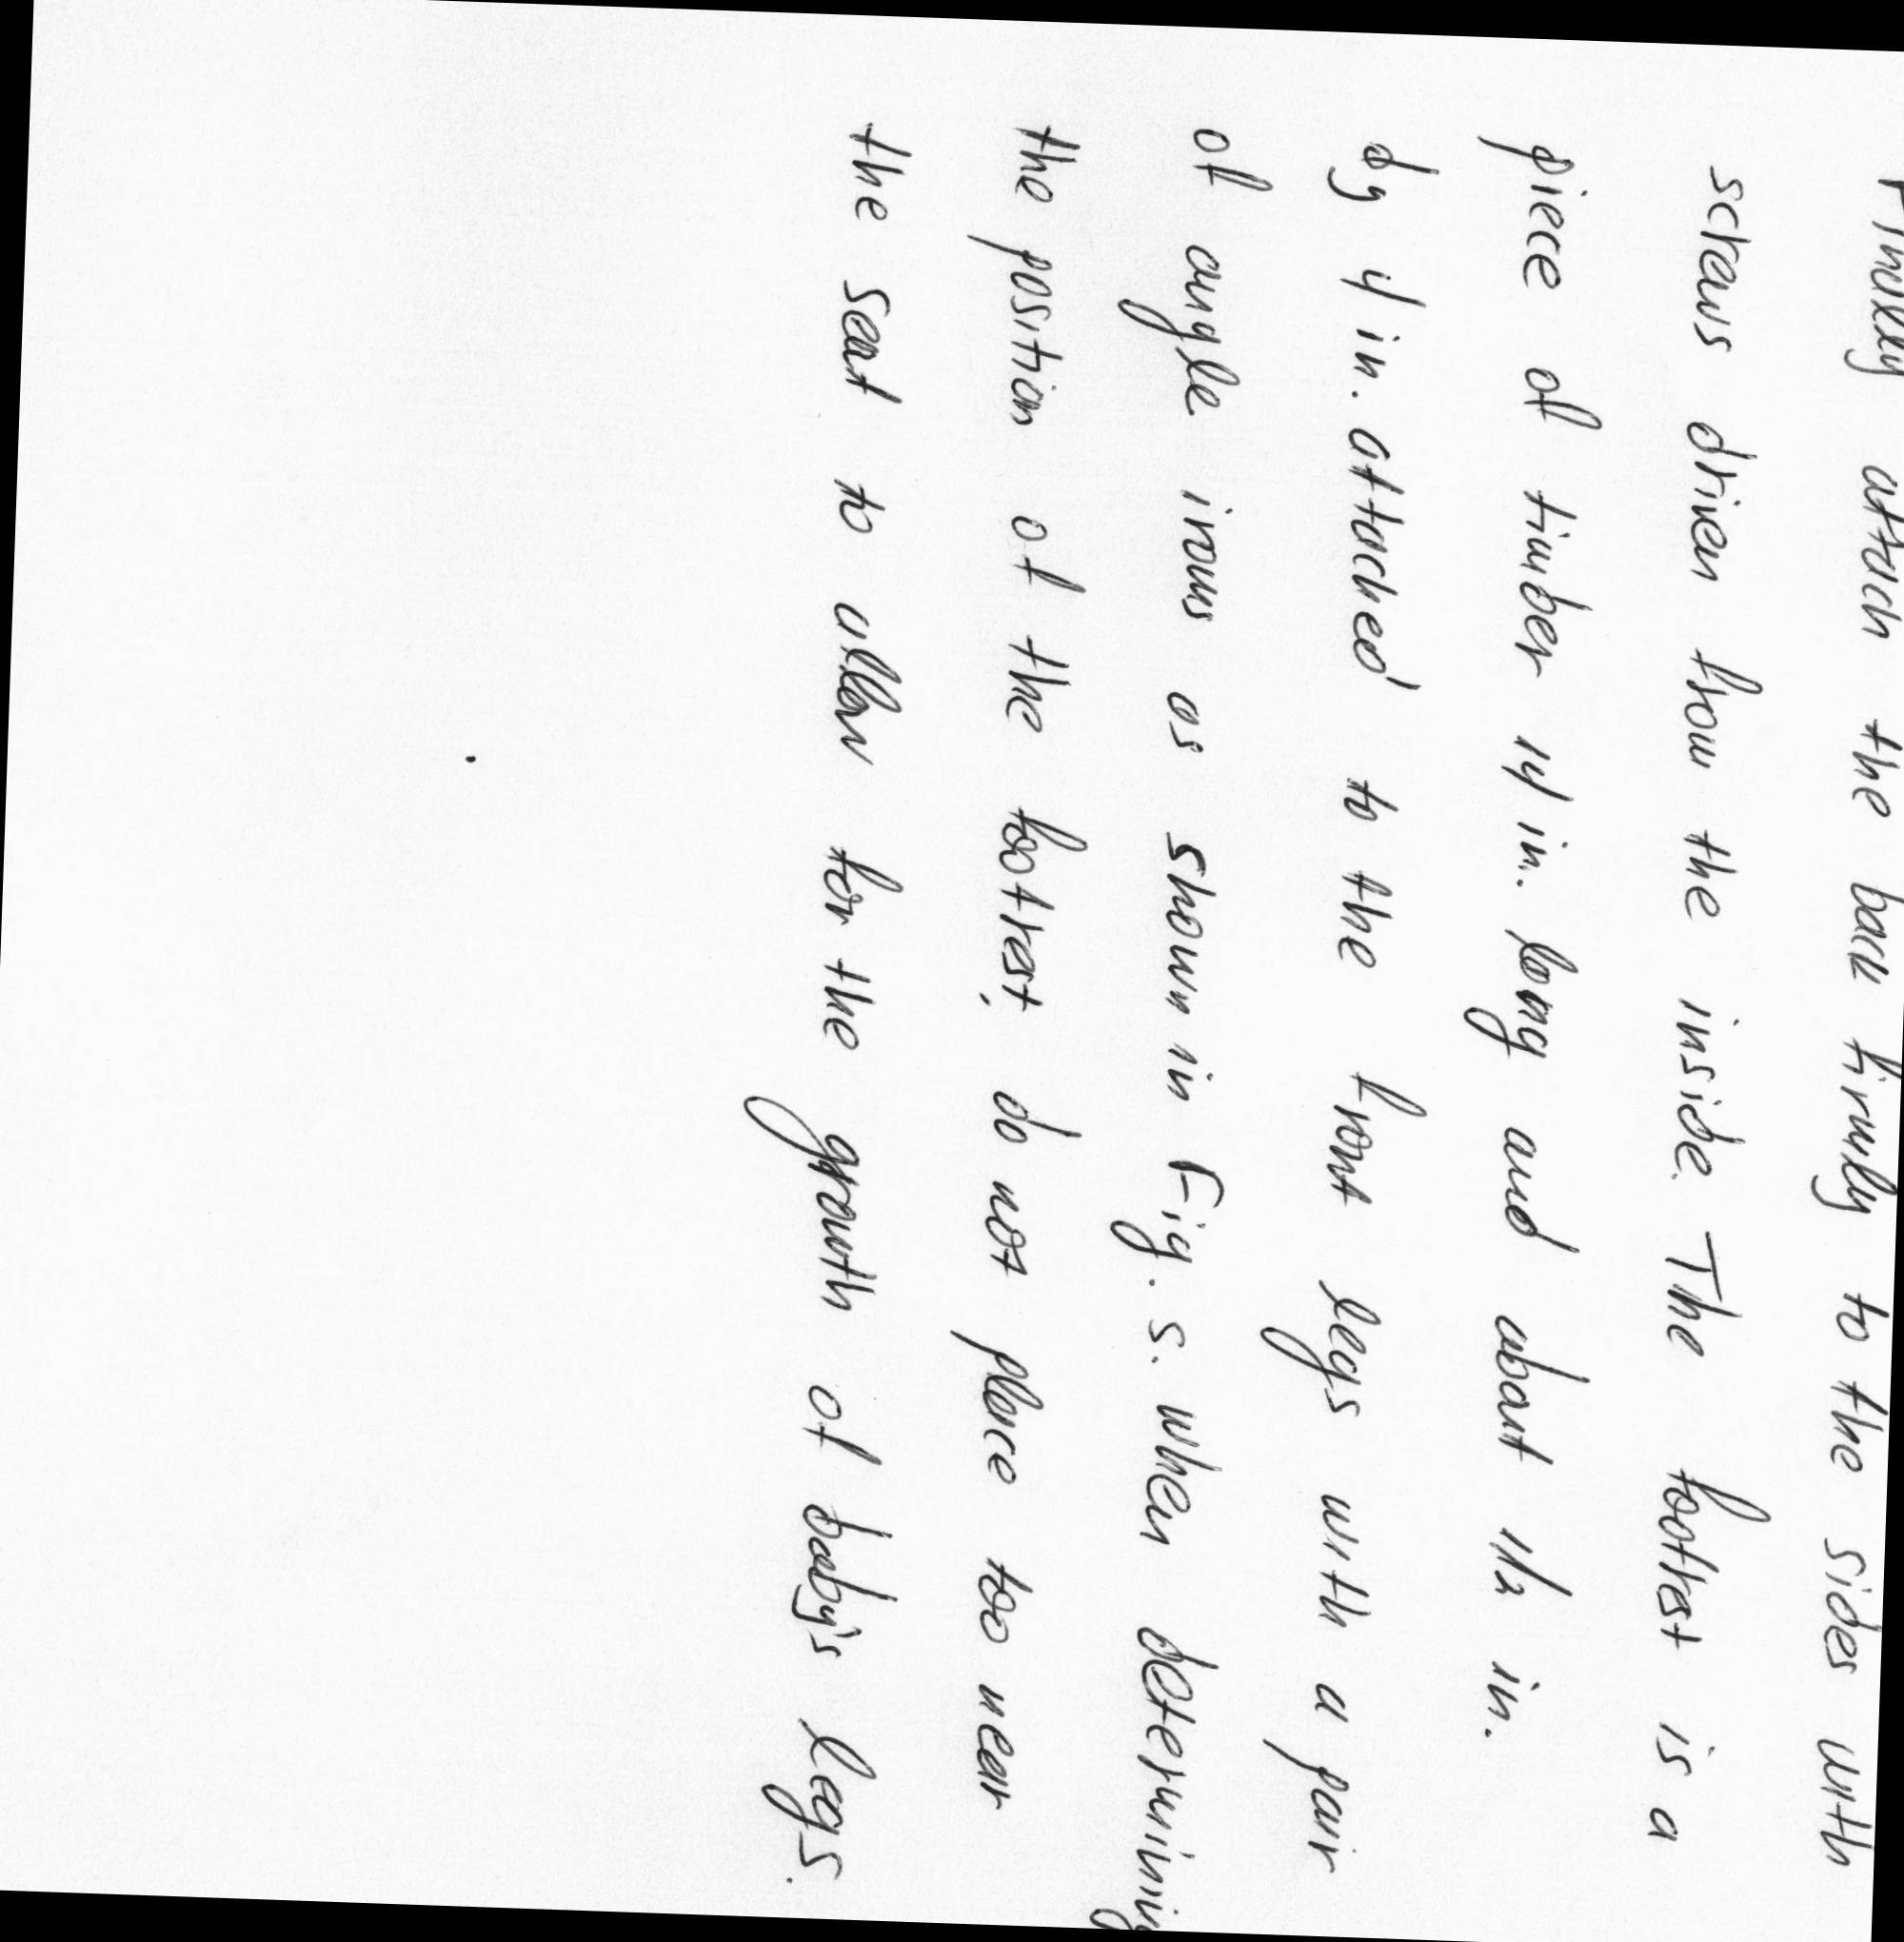 Finally attach the back firmly to the sides with
screws driven from the inside. The footrest is a
piece of timber 14 in. long and about 1 1/2 in.
by 4 in. attached to the front legs with a pair
of angle irons as shown in Fig. 5. When determining
the position of the footrest, do not place too near
the seat to allow for the growth of baby's legs.